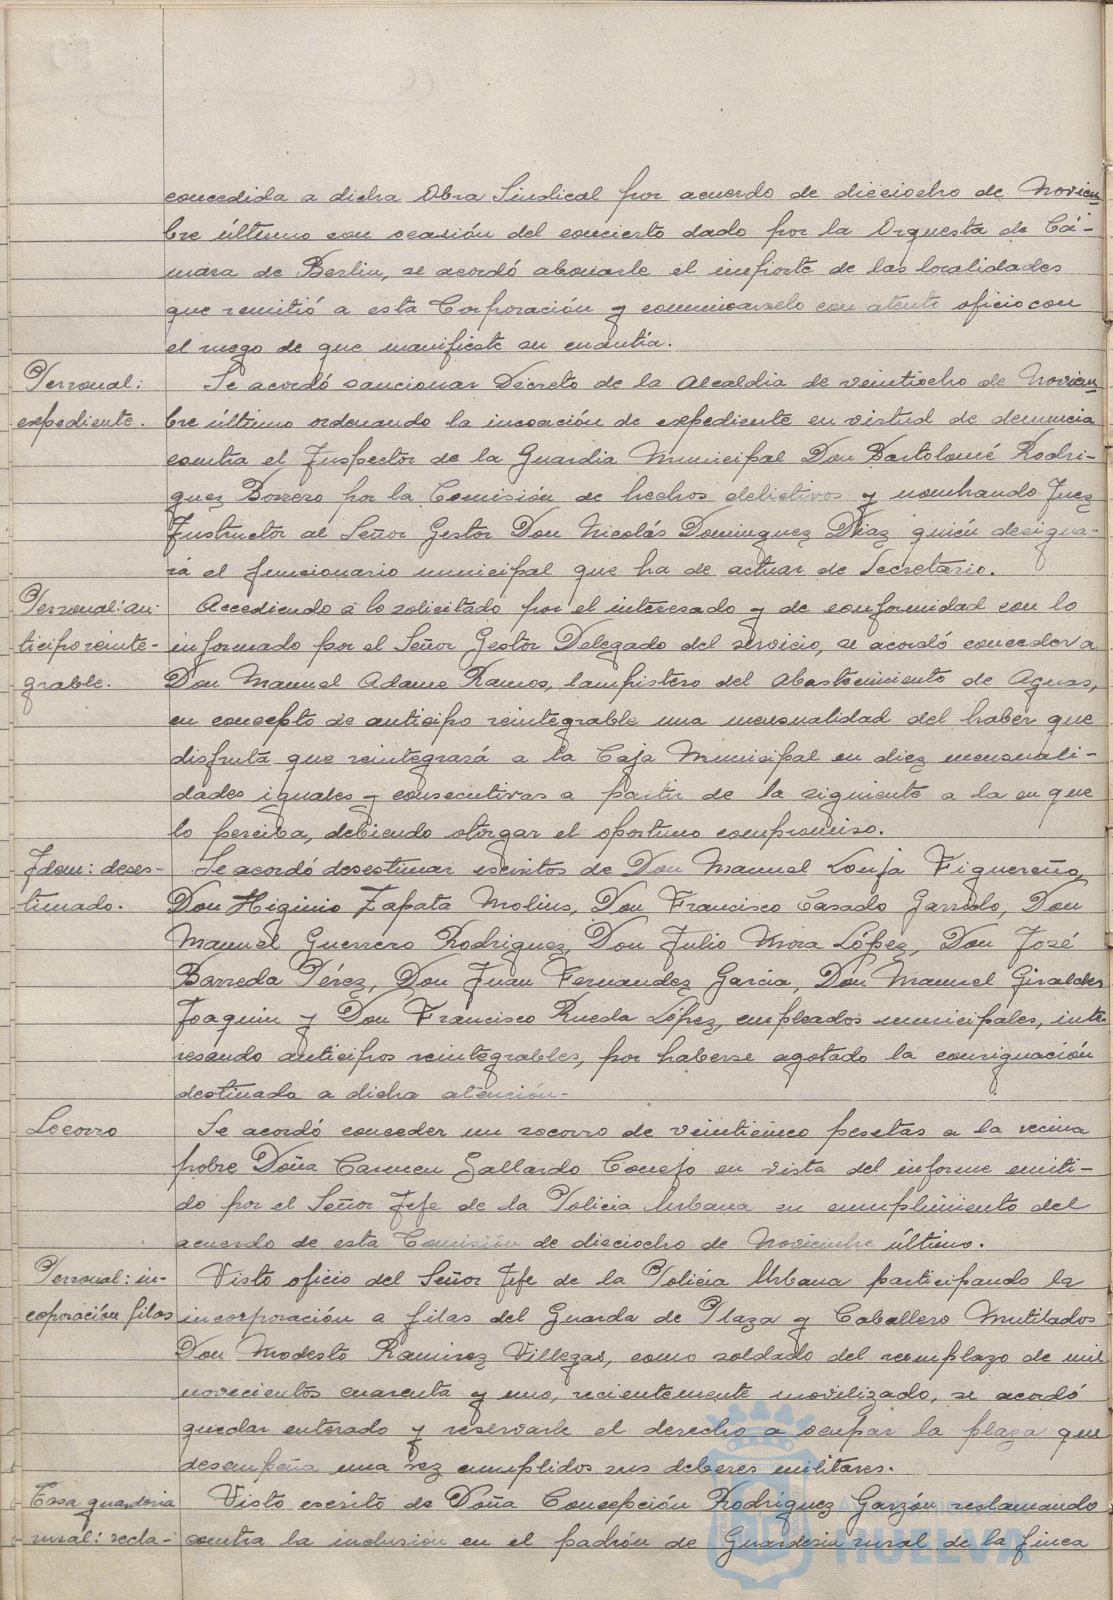 concedida a dicha Obra Sindical por acuerdo de dieciocho de Noviem
bre último con ocasión del concierto dado por la Orquesta de Cá-
mara de Berlin, se acordó abonarle el importe de las localidades
que remitió a esta Corporación y comunicarselo con atento oficio con
el ruego de que manifieste su cuantía.
Personal: expediente.
Se acordó sancionar Decreto de la Alcaldia de veintiocho de Noviem
bre último ordenando la incoación de expediente en virtud de denuncia
contra el Inspector de la Guardia Municipal Don Bartolomé Rodri-
guez Borrero por la Comisión de hechos delictivos y nombrando Juez
Instructor al Señor Gestor Don Nicolás Dominguez Diaz quién designa-
rá el funcionario municipal que ha de actuar de Secretario.
Personal: an-
ticipo reinte-
grable.
Accediendo a lo solicitado por el interesado y de conformidad con lo
informado por el Señor Gestor Delegado del servicio, se acordó conceder a
Don Manuel Adame Ramos, lampistero del Abastecimiento de Aguas,
en concepto de anticipo reintegrable una mensualidad del haber que
disfruta que reintegrará a la Caja Municipal en diez mensuali-
dades iguales y consecutivas a partir de la siguiente a la en que
lo perciba, debiendo otorgar el oportuno compromiso.
Idem: deses-
timado.
Se acordó desestimar escritos de Don Manuel Figuereño,
Don Higinio Zapata Molins, Don Francisco Casado Garrido, Don
Manuel Guerrero Rodriguez, Don Julio Mora López, Don José
Barreda Pérez, Don Juan Fernandez Garcia, Don Manuel Giraldez
Joaquin y Don Francisco Rueda López, empleados municipales, inte-
resando anticipos reintegrables, por haberse agotado la consignación
destinada a dicha atención.-
Socorro
Se acordó conceder un socorro de veinticinco pesetas a la vecina
pobre Doña Carmen Gallardo Conejo en vista del informe emiti-
do por el Señor Jefe de la Policia Urbana en cumplimiento del
acuerdo de esta Comisión de dieciocho de Noviembre último.
Personal: in-
coporación filas
Visto oficio del Señor Jefe de la Policia Urbana participando la
incorporación a filas del Guarda de Plaza y Caballero Mutilados
Don Modesto Ramirez Villegas, como soldado del reemplazo de mil
novecientos cuarenta y uno, recientemente movilizado, se acordó
quedar enterado y reservarle el derecho a ocupar la plaza que
desempeña una vez cumplidos sus deberes militares.
Tasa guarderia
rural: recla-
Visto escrito de Doña Concepción Rodriguez Garzón reclamando
contra la inclusión en el padrón de Guarderia rural de la finca
HUELVA